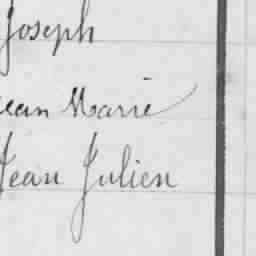 Joseph
Jean Marie
Jean Julien